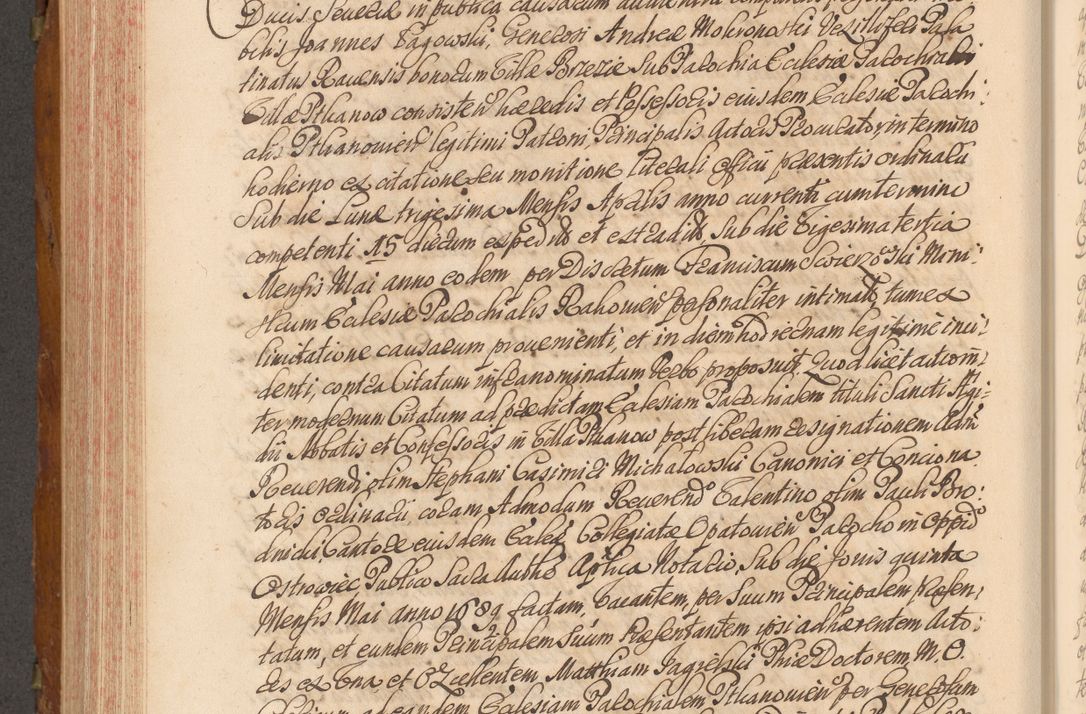 Ducis Severiæ in publica causarum audientia comparens personaliter No-
bilis Joannes Pagowski, Generosi Andreæ Mokronoski Vexilliferi Pala
tinatus Ravensis bonorum Villæ Brzezie sub Parochia Ecclesiæ Parochialis
Villæ Ptkanow consisten. hæredis et Possessoris eiusdem Ecclesiæ Parochi:
alis Ptkanovien. legitimi Patroni, Principalis Actoris Procurator in termino
hodierno ex citatione seu monitione literali officii præsentis ordinarii
Sub die Lunæ trigesima Mensis Aprilis anno currenti cum termino
competenti 15 dierum expedit. et extradit. Sub die Vigesima tertia
Mensis Mai anno eodem per Discretum Franciscum Swierzowski Mini-
strum Ecclesiæ Parochialis Rakovien. personaliter intimat., tum ex
limitatione causarum provenienti, et in diem hodiernam legitime inci-
denti, contra Citatum infranominatum Verbo proposuit. Quod licet actor in-
ter modernum Citatum ad prædictam Ecclesiam Parochialem tituli Sancti Ægi-
dii Abbatis et Confessoris in Villa Ptkanow post liberam resignationem Adm.
Reverendi olim Stephani Casimiri Michałowski Canonici et Conciona
toris ordinarii, coram Admodum Reverendo Valentino olim Pauli Bro:
dnicki Cantore eiusdem Eccles. Collegiatæ Opatovien. Parocho in Oppido
Ostrowiec, Publico Sacra Autho. Aplica Notario, sub die Jovis quinta
Mensis Mai anno 1689 factam, Vacantem, per suum Principalem præsen-
tatum, et eundem Principalem suum Præsentantem ipsi adhærentem Acto:
res ex Una, et Excellentem Matthiam Jagielski Phiæ Doctorem, M. O.
ad eandem Ecclesiam Parochialem Ptkanovien. per Generosam